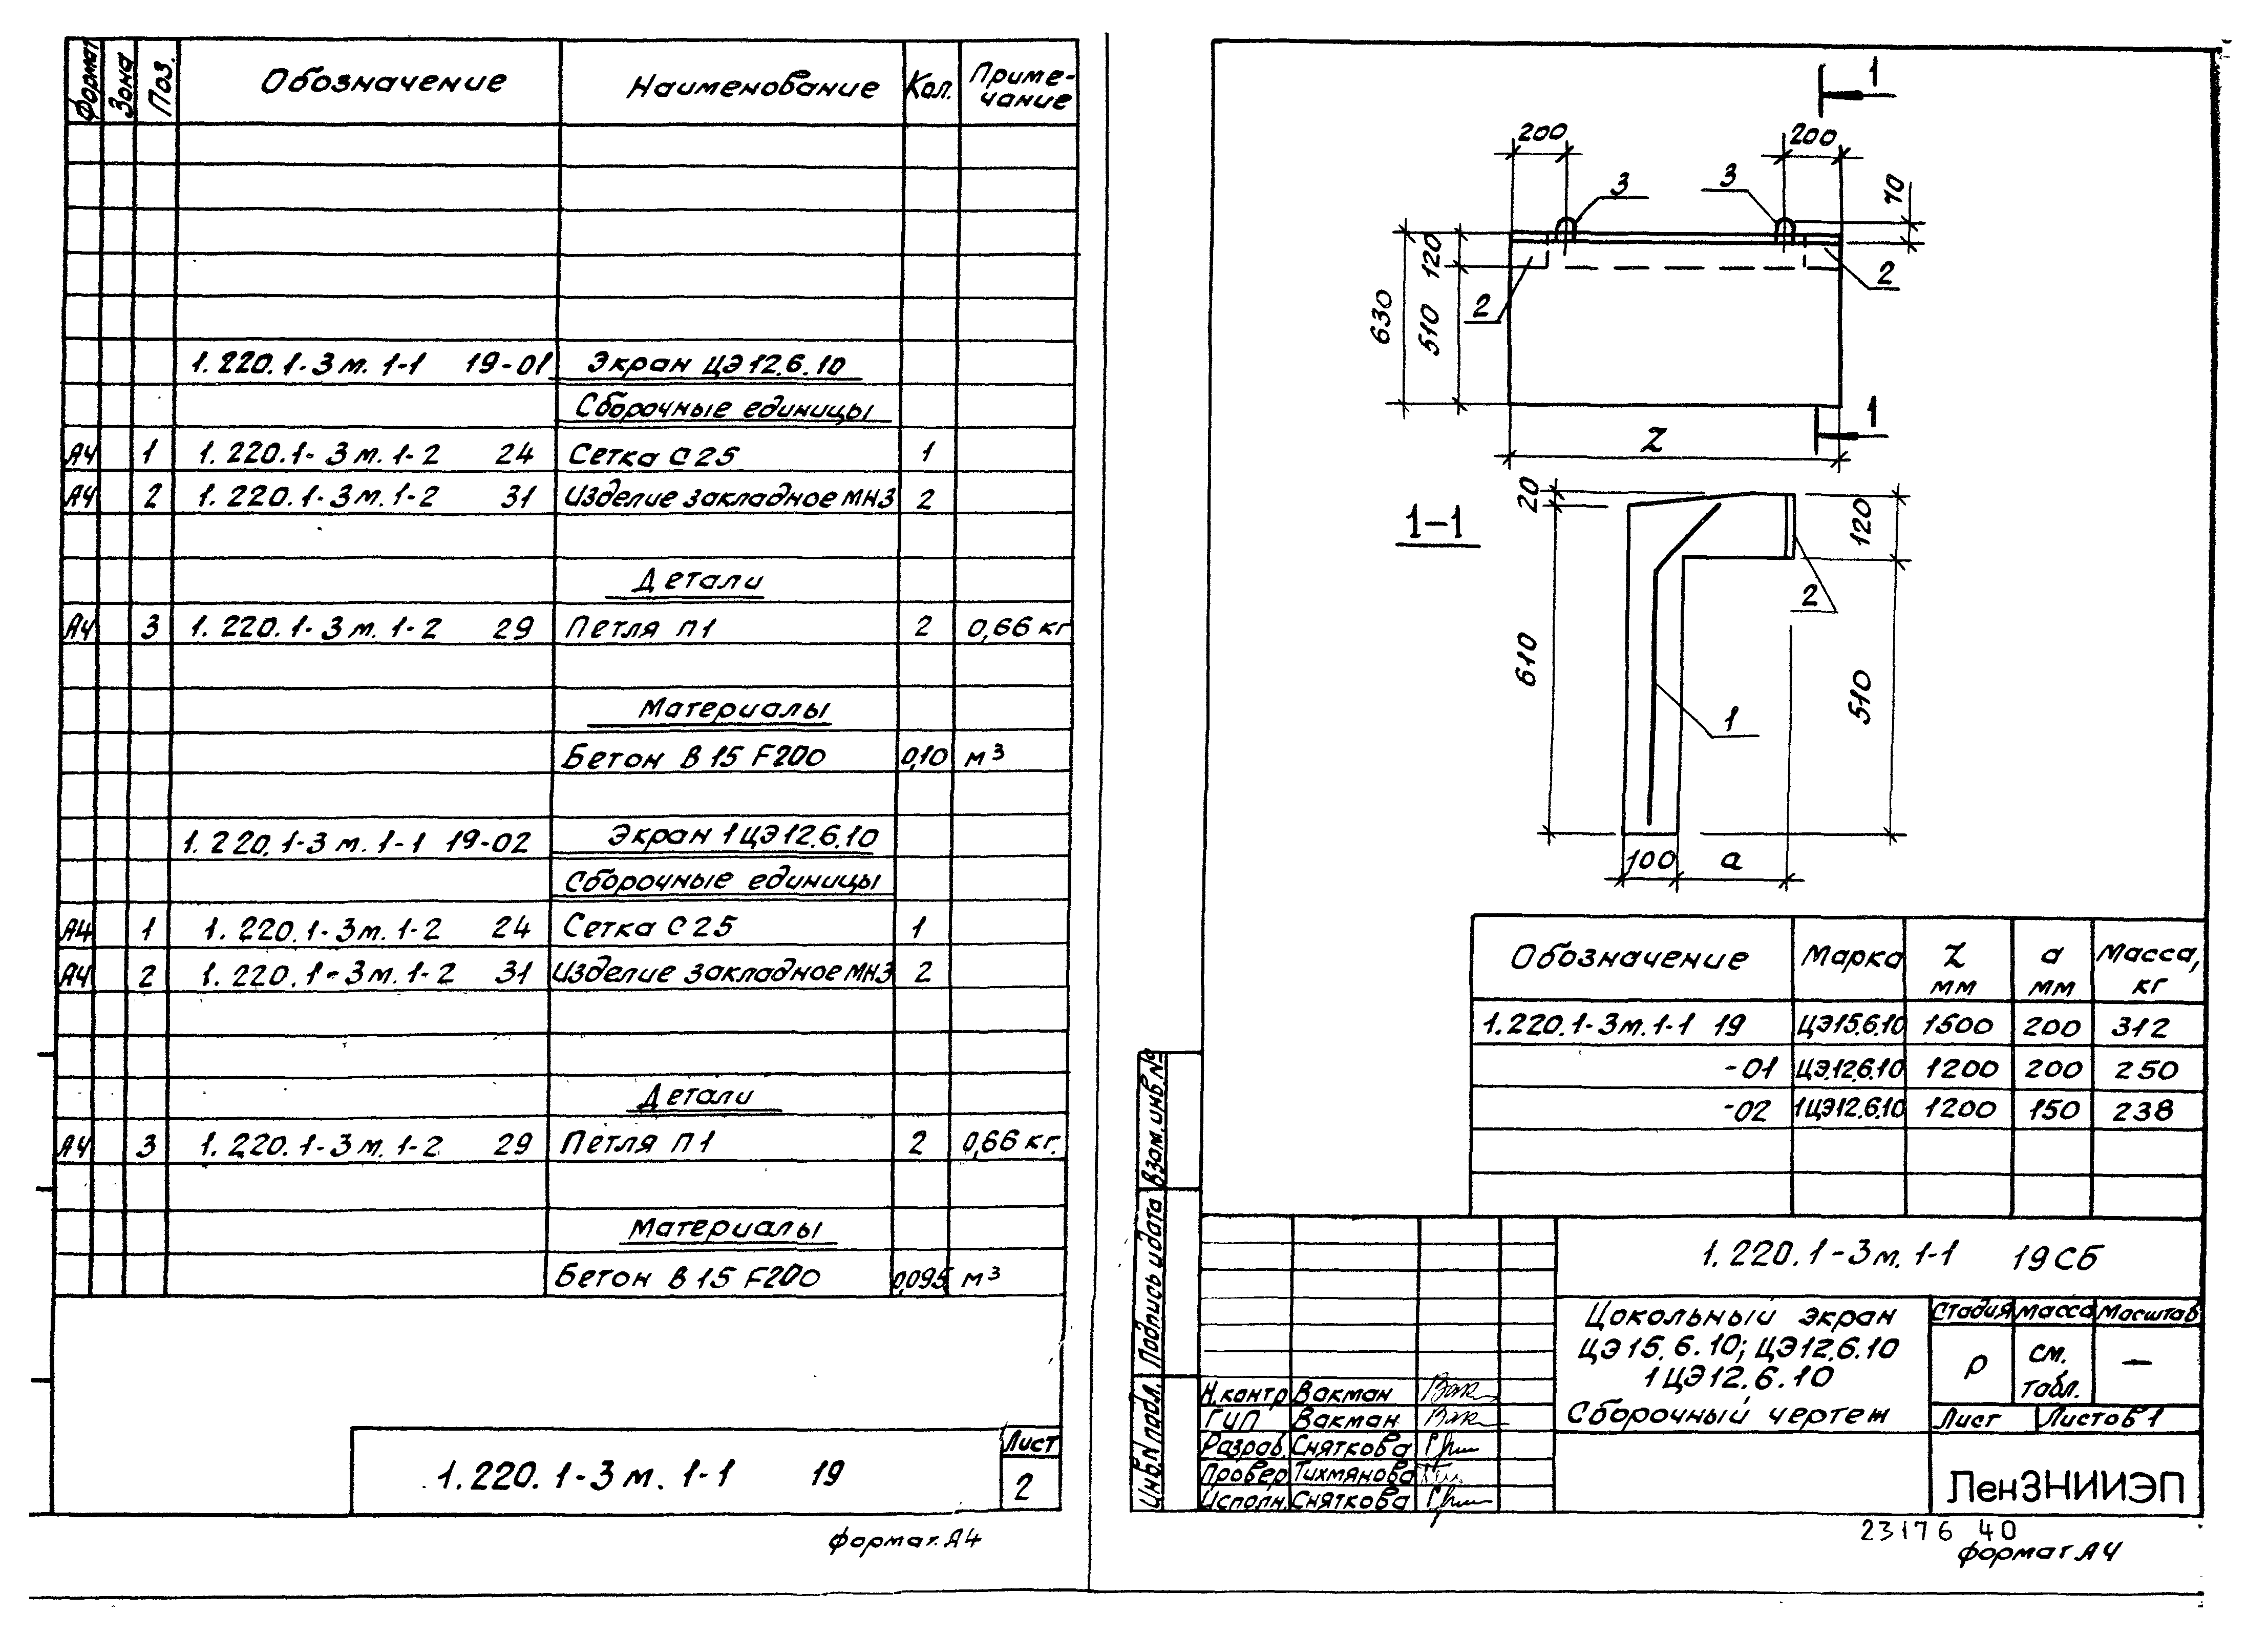 Формат Зона Поз. Обозначение Наименование Кол. Приме-
чание
1.220.1-3м.1-1 19-01 Экран ЦЭ12.6.10
Сборочные единицы
А4 1 1.220.1-3м.1-2 24 Сетка С25 1
А4 2 1.220.1-3м.1-2 31 Изделие закладное МН3 2
Детали
А4 3 1.220.1-3м.1-2 29 Петля П1 2 0,66 кг
Материалы
Бетон В15 F200 0,10 м³
1.220.1-3м.1-1 19-02 Экран 1ЦЭ12.6.10
Сборочные единицы
А4 1 1.220.1-3м.1-2 24 Сетка С25 1
А4 2 1.220.1-3м.1-2 31 Изделие закладное МН3 2
Детали
А4 3 1.220.1-3м.1-2 29 Петля П1 2 0,66 кг.
Материалы
Бетон В15 F200 0,095 м³
1.220.1-3м.1-1 19
Лист
2
формат А4
1
200 200
3 3 70
630 120 510
2 2
1
Z
1-1
20 120
2
610 510
1
100 а
Обозначение Марка Z мм а мм Масса, кг
1.220.1-3м.1-1 19 ЦЭ15.6.10 1500 200 312
-01 ЦЭ12.6.10 1200 200 250
-02 1ЦЭ12.6.10 1200 150 238
Взам.инв.№
Подпись и дата
Инв.N подл.
1.220.1-3м.1-1 19СБ
Цокольный экран
ЦЭ15.6.10; ЦЭ12.6.10
1ЦЭ12.6.10
Сборочный чертеж
Стадия Масса Масштаб
Р см. табл. —
Лист Листов 1
Н.контр Вакман
ГИП Вакман
Разраб. Сняткова
Провер Тихмянова
Исполн. Сняткова
ЛенЗНИИЭП
23176 40
формат А4